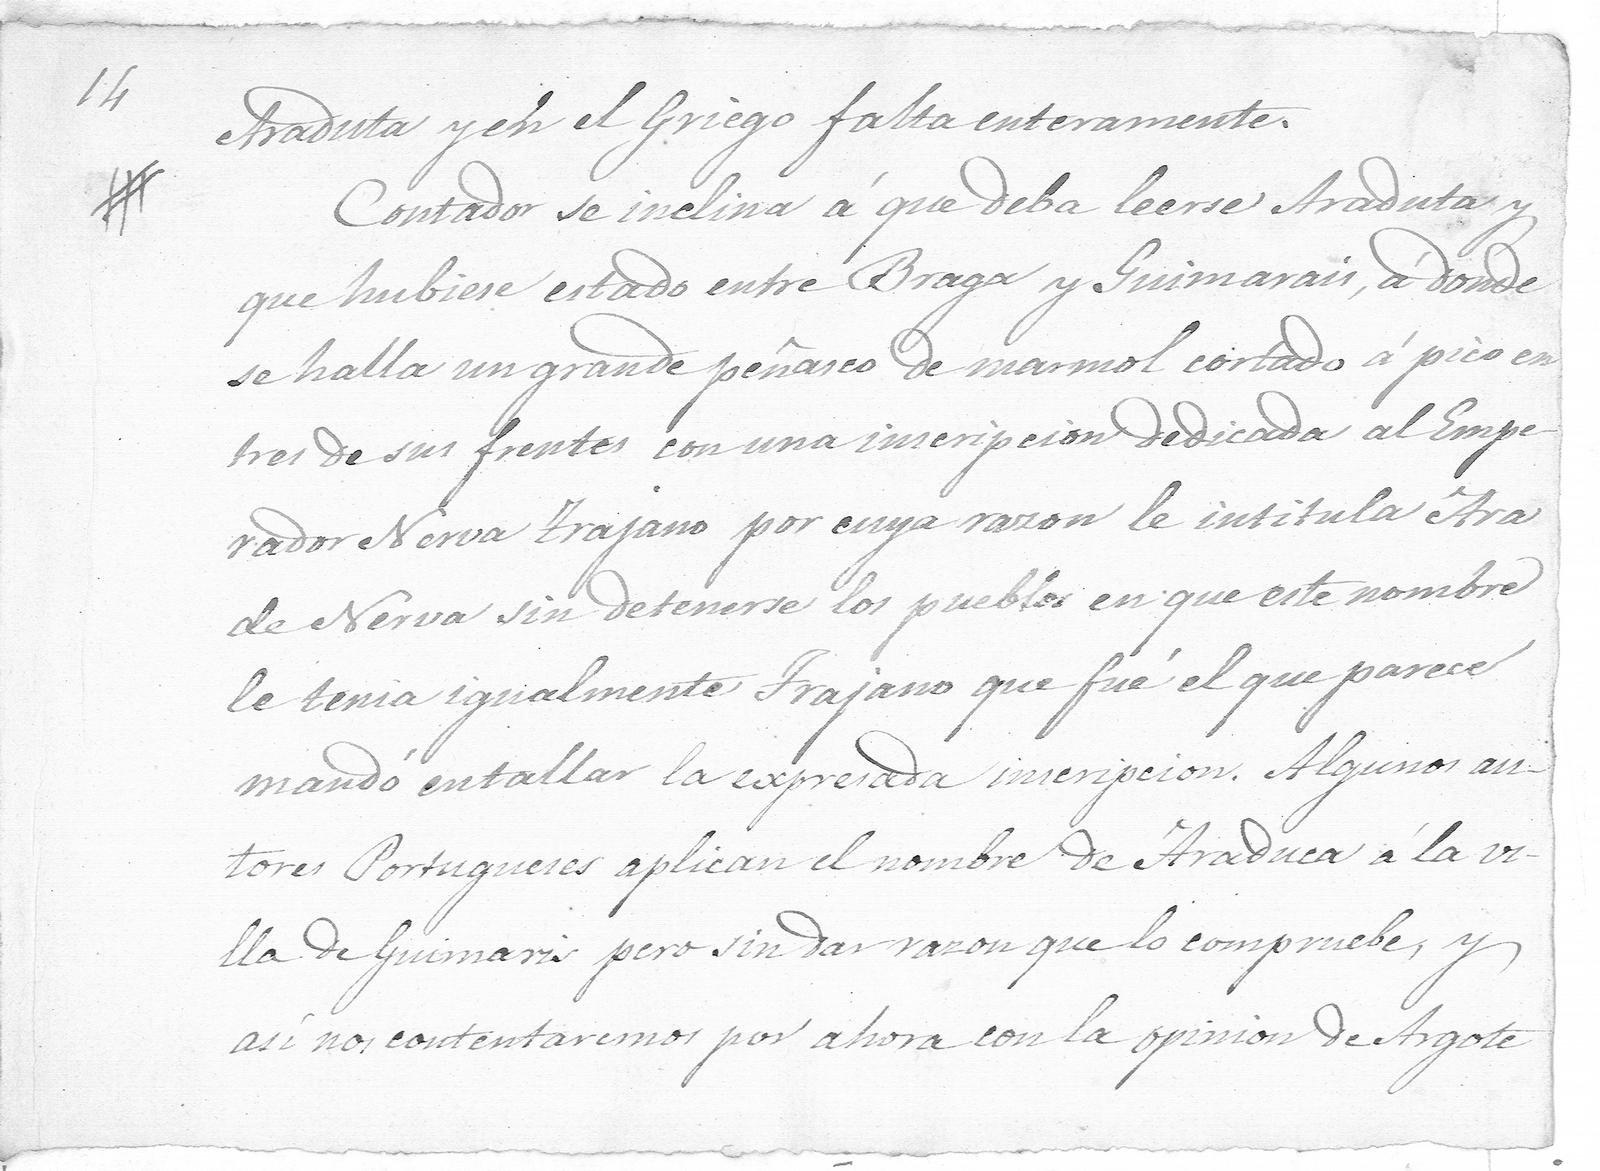 14
Araduta y en el Griego falta enteramente.
Contador se inclina á que deba leerse Araduta y
que hubiese estado entre Braga y Guimarais, á donde
se halla un grande peñasco de marmol cortado á pico en
tres de sus frentes con una inscripcion dedicada al Empe-
rador Nerva Trajano por cuya razon le intitula Ara
de Nerva sin detenerse los pueblos en que este nombre
le tenia igualmente Trajano que fué el que parece
mandó entallar la expresada inscripcion. Algunos au-
tores Portugueses aplican el nombre de Araduca á la vi-
lla de Guimaris pero sin dar razon que lo compruebe, y
así nos contentaremos por ahora con la opinion de Argote